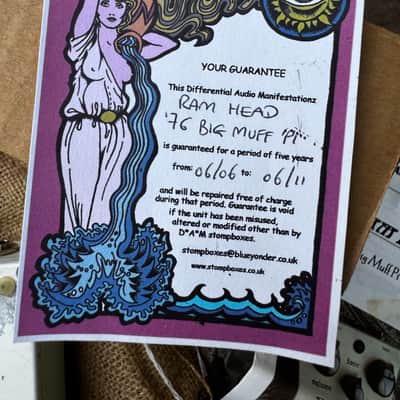 YOUR GUARANTEE
This Differential Audio Manifestationz
RAM HEAD
'76 BIG MUFF 'Pi'
is guaranteed for a period of five years
from: 06/06 to: 06/11
and will be repaired free of charge
during that period. Guarantee is void
if the unit has been misused,
altered or modified other than by
D*A*M stompboxes.
stompboxes@blueyonder.co.uk
www.stompboxes.co.uk
Muff Pi